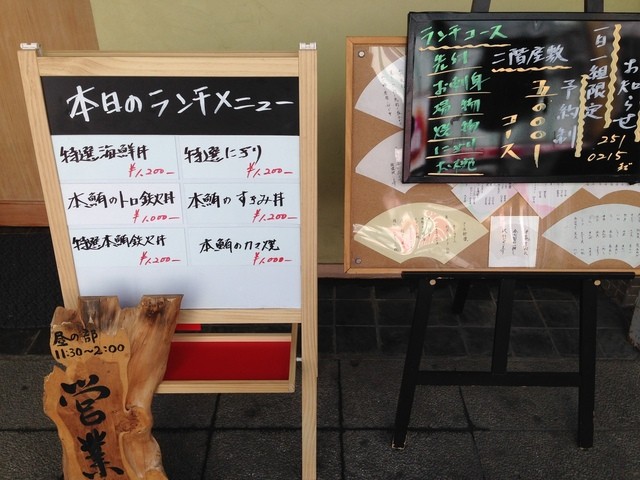 本日のランチメニュー
特選海鮮丼
¥1,200-
特選にぎり
¥1,200-
本鮪のトロ鉄火丼
¥1,000-
本鮪のすきみ丼
¥1,200-
特選本鮪鉄火丼
¥1,200-
本鮪のカマ焼
¥1,000-
昼の部
11:30~2:00
営業
お知らせ
一日一組限定
予約制
二階屋敷
五〇〇〇
コース
ランチコース
先付
お刺身
焼物
にぎり
お椀
251
0215